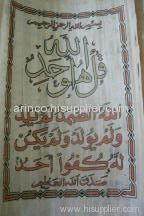 بسم الله الرحمن الرحيم
قل هو الله أحد
الله الصمد لم يلد
ولم يولد ولم يكن
له كفوا أحد
صدق الله العظيم
arinco.hisupplier.com